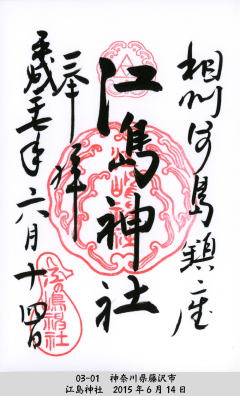 相州江島鎮座
江島神社
奉拝
平成二十七年六月十四日
江の嶋神社
03-01 神奈川県藤沢市
江島神社 2015年6月14日